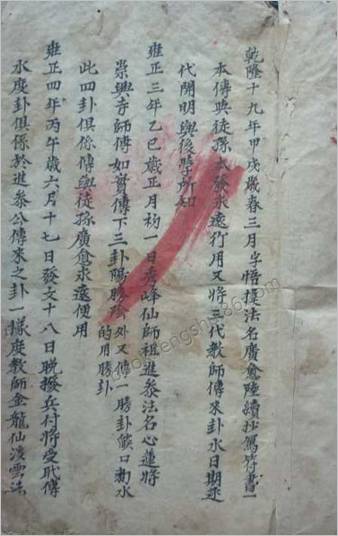 乾隆十九年甲戌歲春三月字悟揆法名廣愈陸續抄寫符書一
本傳與徒孫太發永遠行用又將三代教師傳來卦水日期逐
代開明與後學所知
雍正三年乙巳歲正月初一日秀峰仙師祖進叅法名心蓮將
崇興寺師傳如實傳下三卦賜勝陰外又傳一勝卦饿口勅水
的用勝卦
此四卦俱係傳與徒孫廣愈永遠使用
雍正四年丙午歲六月十七日發文十八日晚撥兵付將受耽傳
水度卦俱係於進叅公傳來之卦一樣度教師金龍仙渡雲法